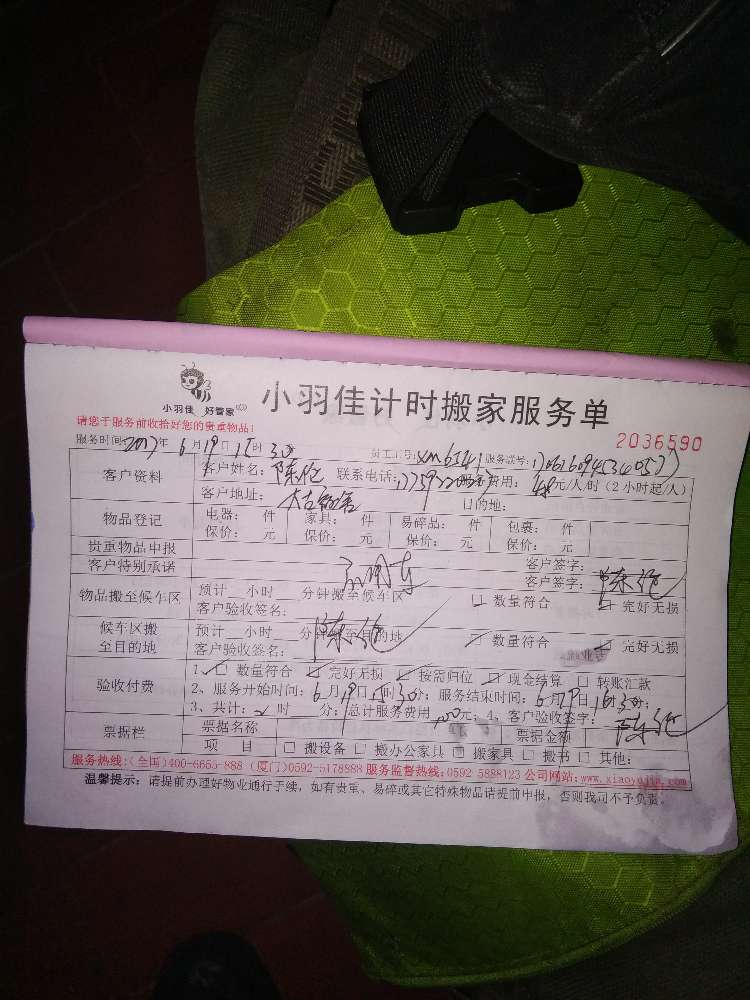 小羽佳 好管家
小羽佳计时搬家服务单
请您于服务前收拾好您的贵重物品!
2036590
服务时间:2017年6月19日15时30分 员工工号: 服务账号:
客户资料 客户姓名:陈 联系电话: 费用: 元/人/时(2小时起/人)
客户地址: 目的地:
物品登记 电器: 件 家具: 件 易碎品: 件 包裹: 件
保价: 元 保价: 元 保价: 元 保价: 元
贵重物品申报 客户签字:
客户特别承诺 客户签字:陈
物品搬至候车区 预计__小时__分钟搬至候车区 数量符合 完好无损
客户验收签名:
候车区搬至目的地 预计__小时__分钟搬至目的地 数量符合 完好无损
客户验收签名:陈
验收付费 1、 数量符合 完好无损 按需归位 现金结算 转账汇款
2、服务开始时间:6月19日15时30分;服务结束时间:6月19日 时30分;
3、共计:2时 分;总计服务费用 元;4、客户验收签字:陈
票据栏 票据名称 票据金额
项 目 搬设备 搬办公家具 搬家具 搬书 其他:
服务热线:(全国)400-6655-888 (厦门)0592-5178888 服务监督热线:0592 5888123 公司网站:www.xiaoyujia.com
温馨提示:请提前办理好物业通行手续,如有贵重、易碎或其它特殊物品请提前申报,否则我司不予负责。